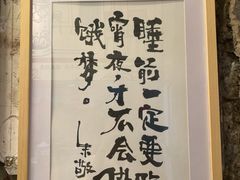 睡前一定要
宵夜,才不会
饿梦。
朱敬